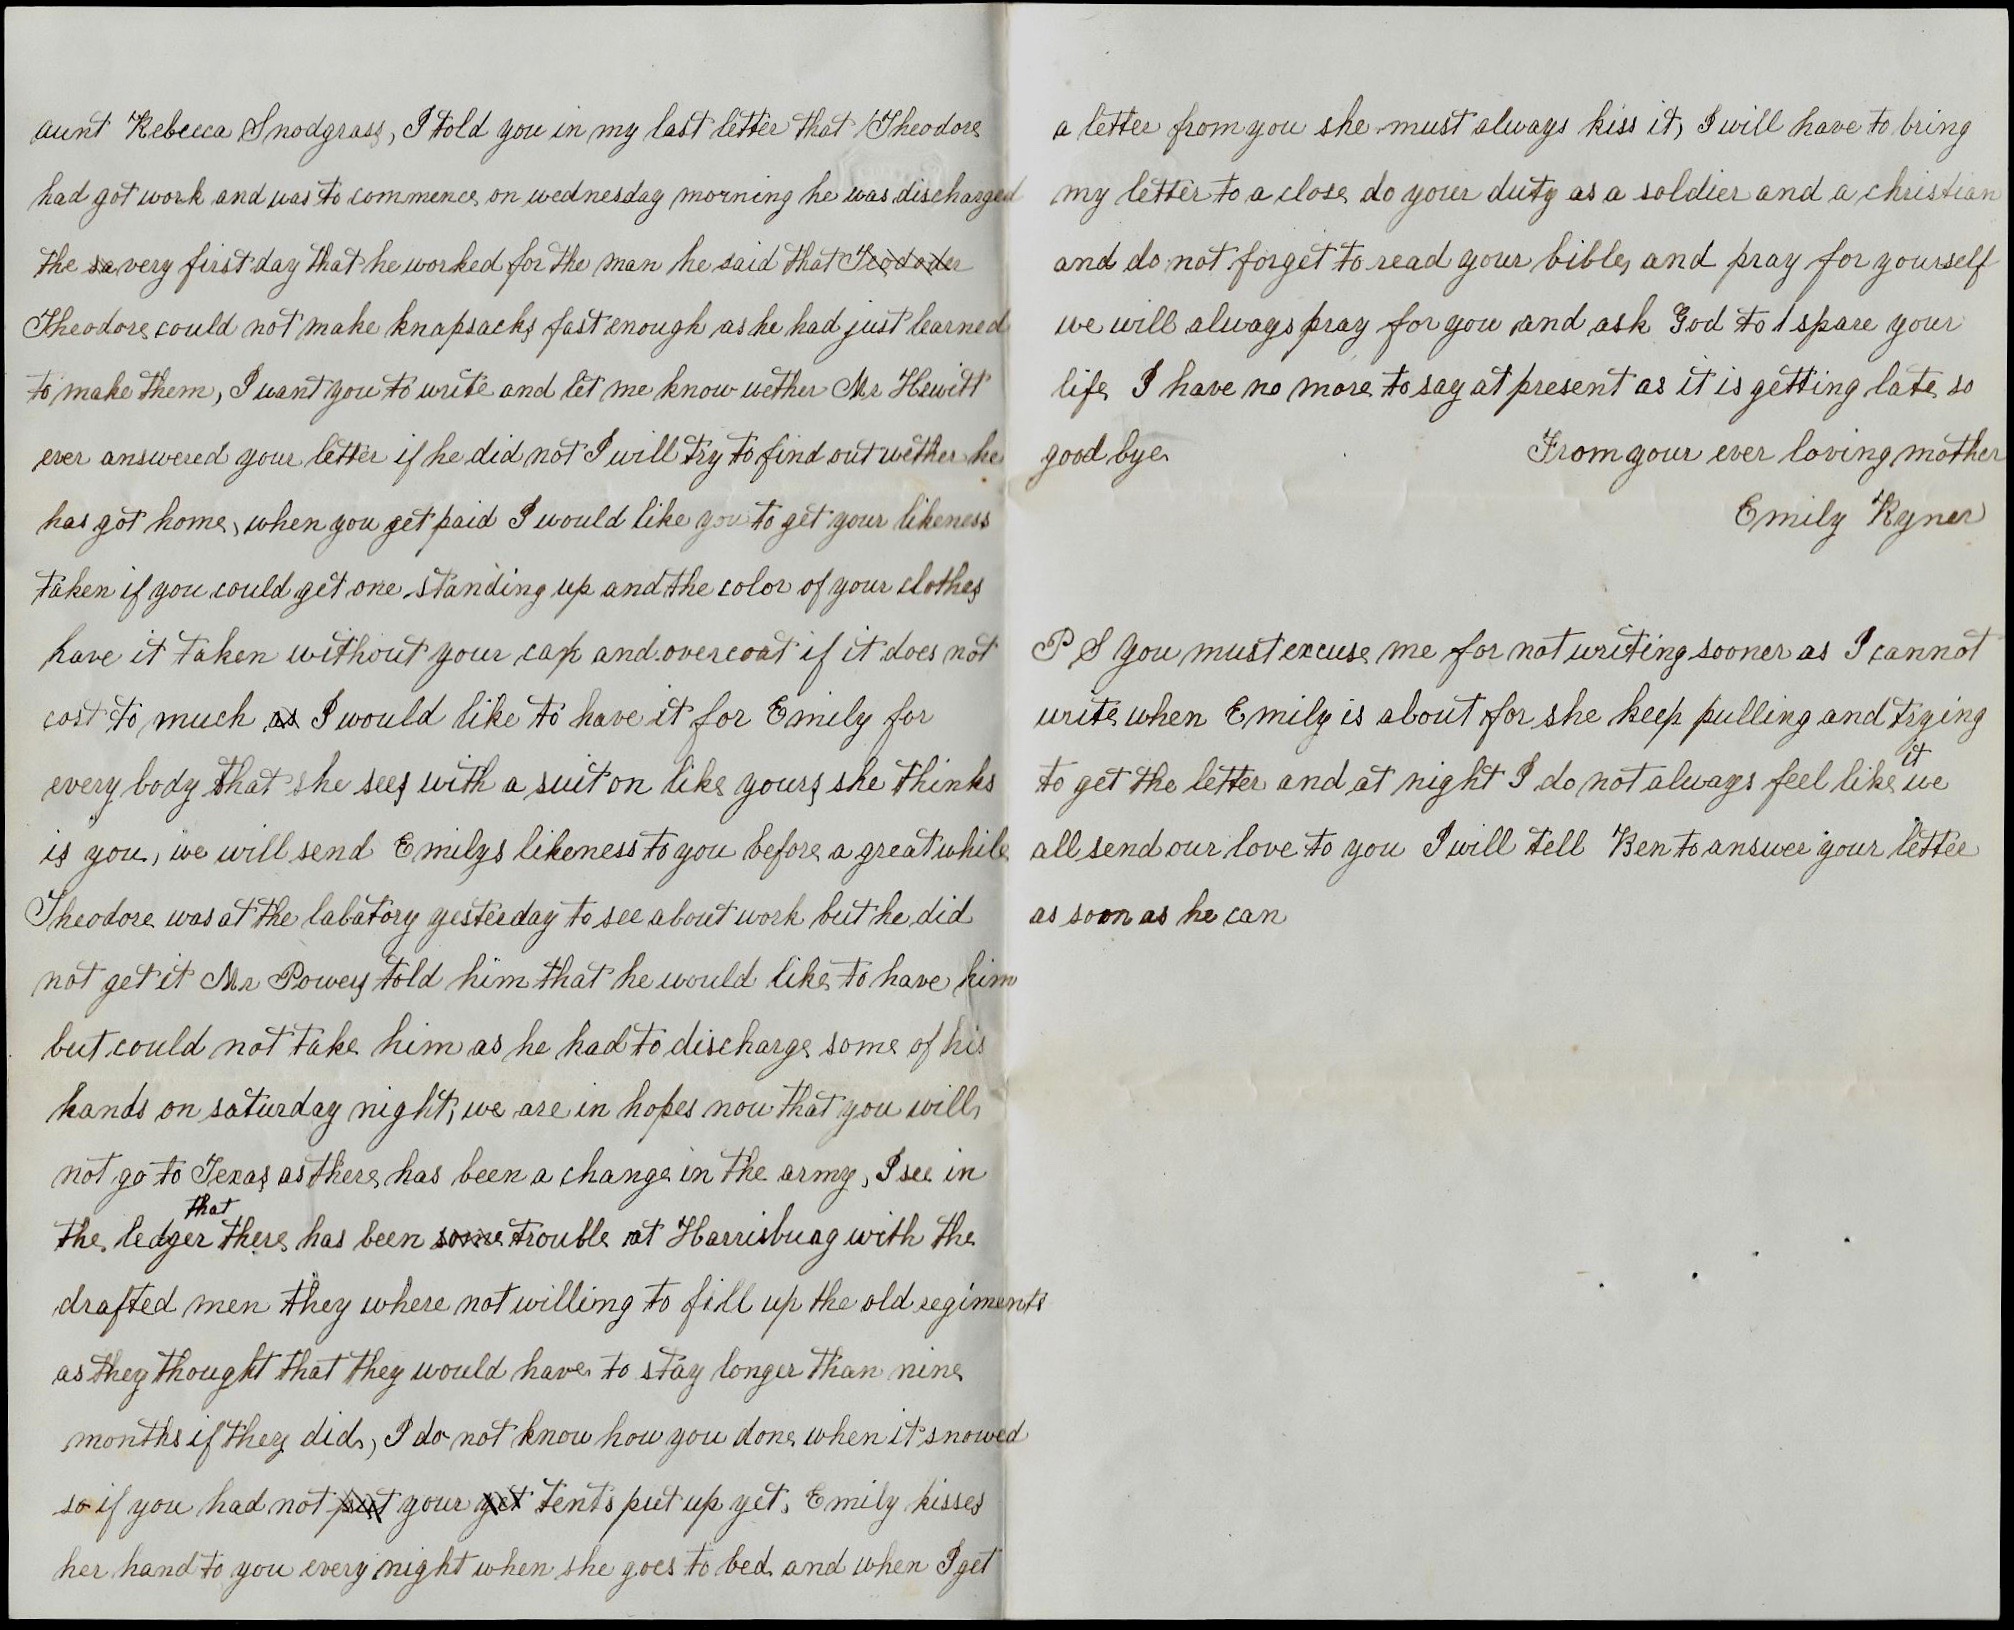 aunt Rebecca Snodgrass, I told you in my last letter that Theodore
had got work and was to commence on wednesday morning he was discharged
the sa very first day that he worked for the man he said that Teododer
Theodore could not make knapsacks fast enough as he had just learned
to make them, I want you to write and let me know wether Mr Hewitt
ever answered your letter if he did not I will try to find out wether he
has got home, when you get paid I would like you to get your likeness
taken if you could get one standing up and the color of your clothes
have it taken without your cap and overcoat if it does not
cost to much as I would like to have it for Emily for
every body that she sees with a suit on like yours she thinks
is you, we will send Emilys likeness to you before a great while
Theodore was at the labatory yesterday to see about work but he did
not get it Mr Powers told him that he would like to have him
but could not take him as he had to discharge some of his
hands on saturday night, we are in hopes now that you will
not go to Texas as there has been a change in the army, I see in
that
the ledger there has been some trouble at Harrisburg with the
drafted men they where not willing to fill up the old regiments
as they thought that they would have to stay longer than nine
months if they did, I do not know how you done when it snowed
so if you had not put your yet tents put up yet. Emily kisses
her hand to you every night when she goes to bed and when I get
a letter from you she must always kiss it, I will have to bring
my letter to a close do your duty as a soldier and a christian
and do not forget to read your bible, and pray for yourself
we will always pray for you and ask God to spare your
life I have no more to say at present as it is getting late so
good bye From your ever loving mother
Emily Kyner
P S you must excuse me for not writing sooner as I cannot
write when Emily is about for she keep pulling and trying
it
to get the letter and at night I do not always feel like we
all send our love to you I will tell Ben to answer your letter
as soon as he can